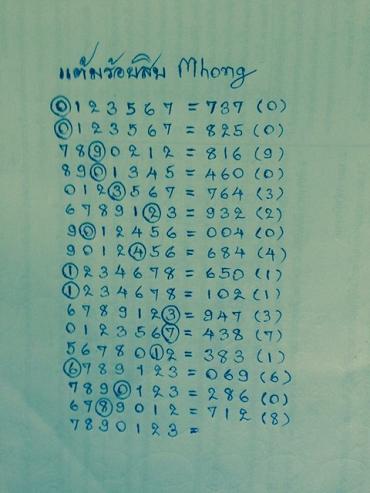 แต้มร้อยสิบ Mhong
0 1 2 3 5 6 7 = 737 (0)
0 1 2 3 5 6 7 = 825 (0)
7 8 9 0 2 1 2 = 816 (9)
8 9 0 1 3 4 5 = 460 (0)
0 1 2 3 5 6 7 = 764 (3)
6 7 8 9 1 2 3 = 932 (2)
9 0 1 2 4 5 6 = 004 (0)
9 0 1 2 4 5 6 = 684 (4)
1 2 3 4 6 7 8 = 650 (1)
1 2 3 4 6 7 8 = 102 (1)
6 7 8 9 1 2 3 = 947 (3)
0 1 2 3 5 6 7 = 438 (7)
5 6 7 8 0 1 2 = 383 (1)
6 7 8 9 1 2 3 = 069 (6)
7 8 9 0 1 2 3 = 286 (0)
6 7 8 9 0 1 2 = 712 (8)
7 8 9 0 1 2 3 =